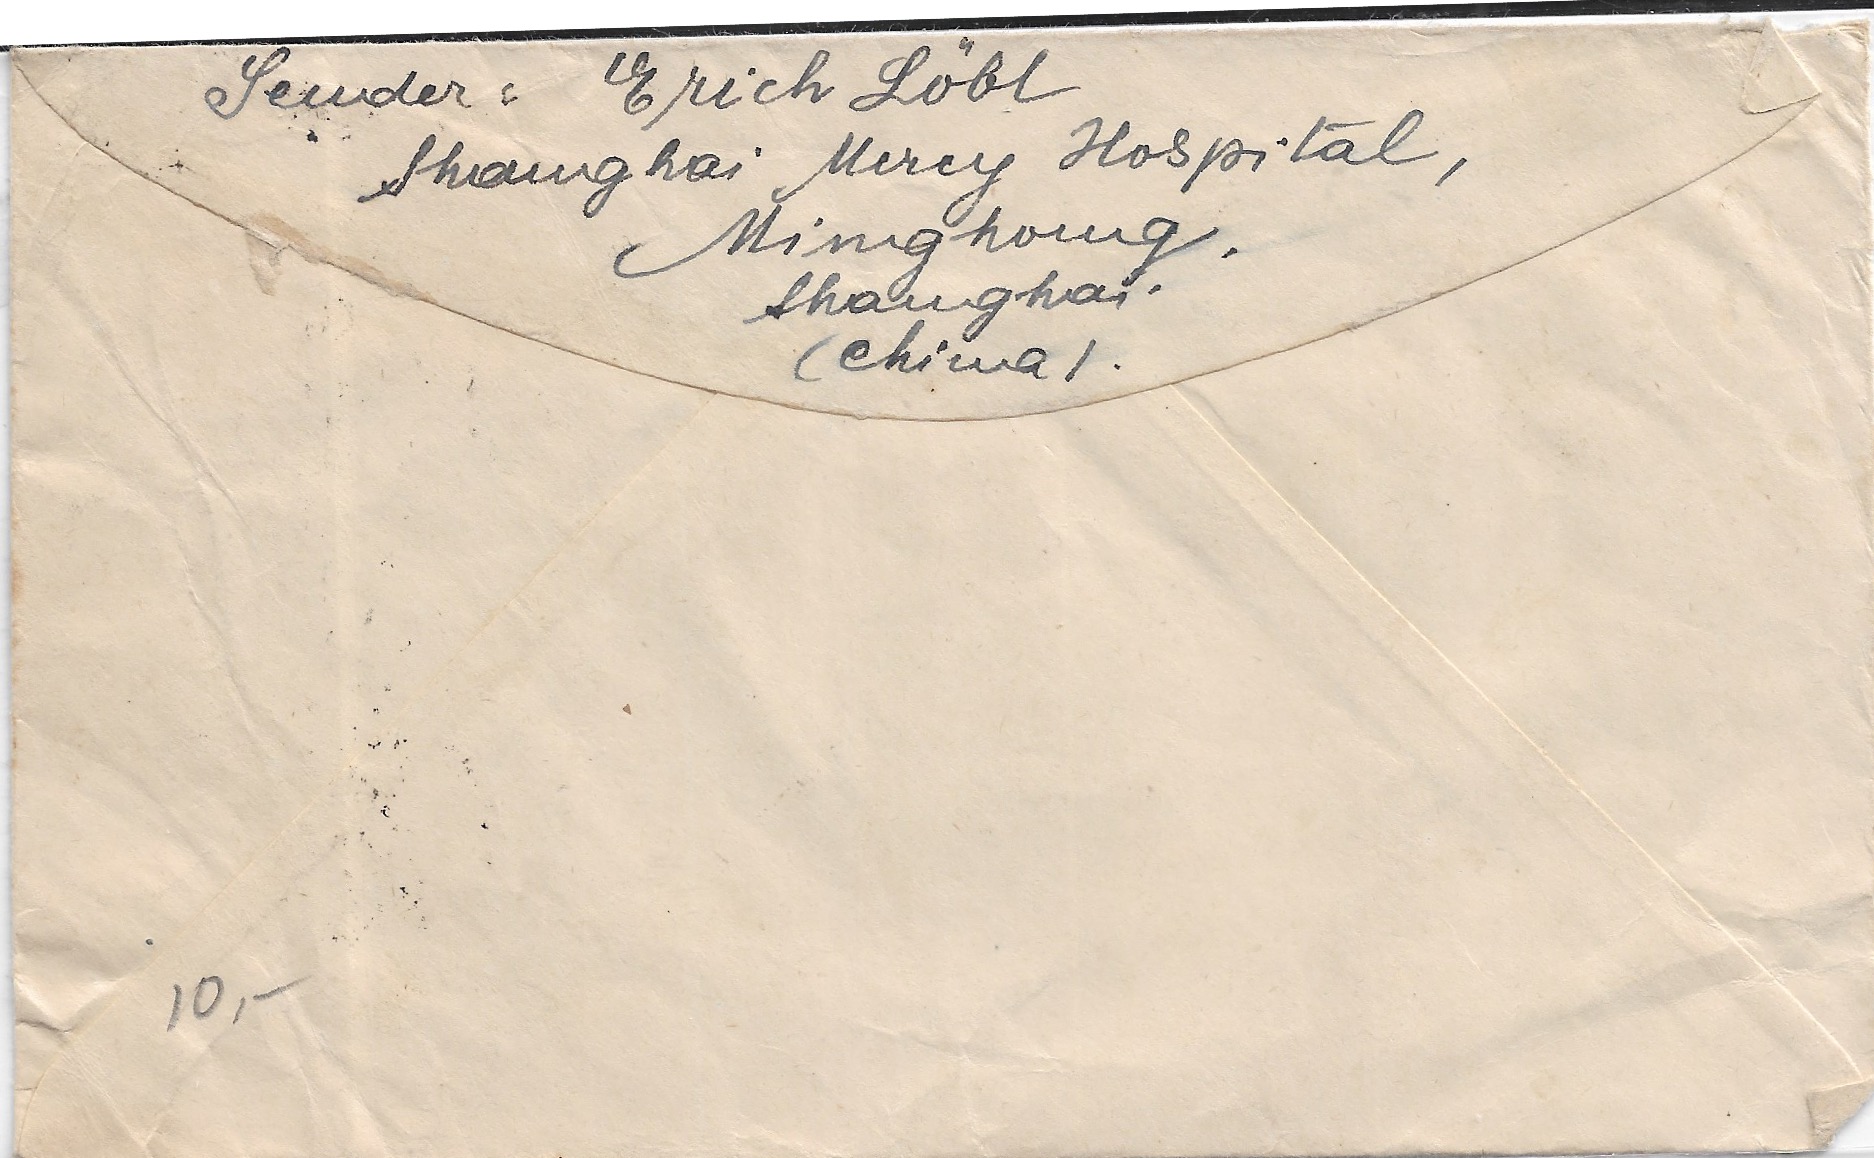 Sender: Erich Löbl
Shanghai Mercy Hospital,
Minghong.
Shanghai.
(China).
10,-